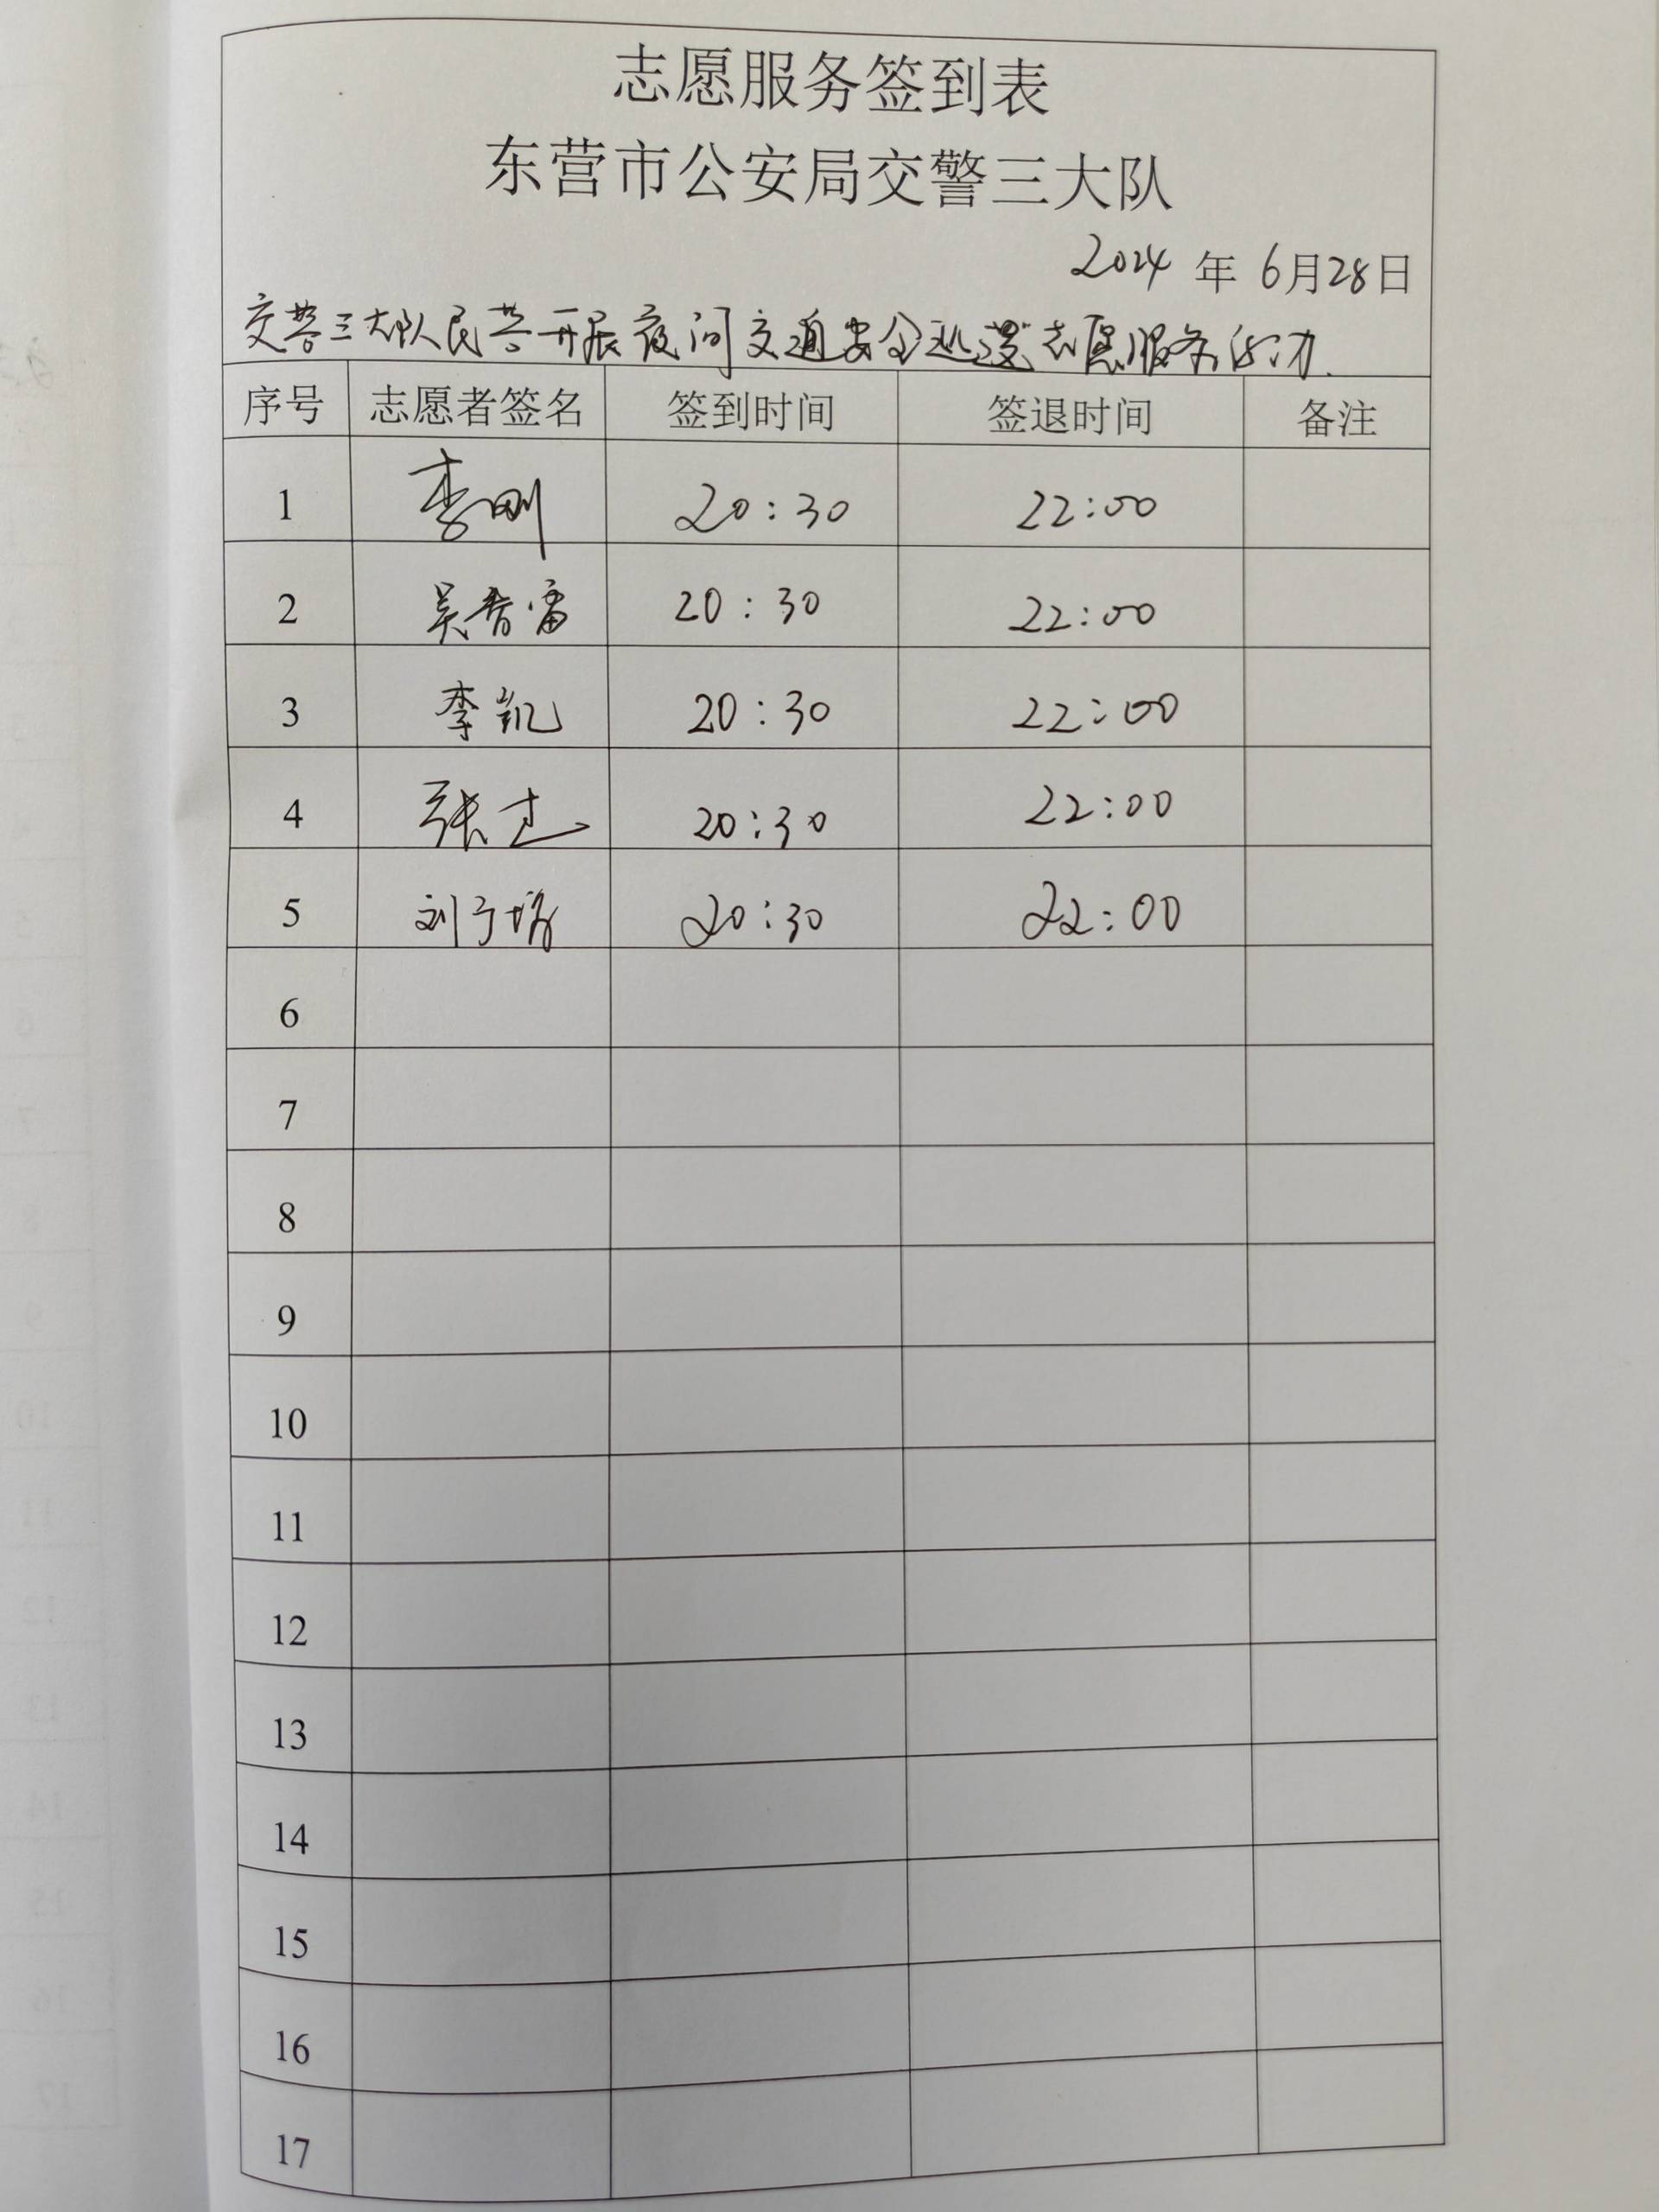 志愿服务签到表
东营市公安局交警三大队
2024 年 6月28日
交警三大队民警开展夜间交通安全巡逻志愿服务活动.
序号 志愿者签名 签到时间 签退时间 备注
1 李刚 20:30 22:00
2 吴香雷 20:30 22:00
3 李凯 20:30 22:00
4 张 20:30 22:00
5 刘 20:30 22:00
6
7
8
9
10
11
12
13
14
15
16
17